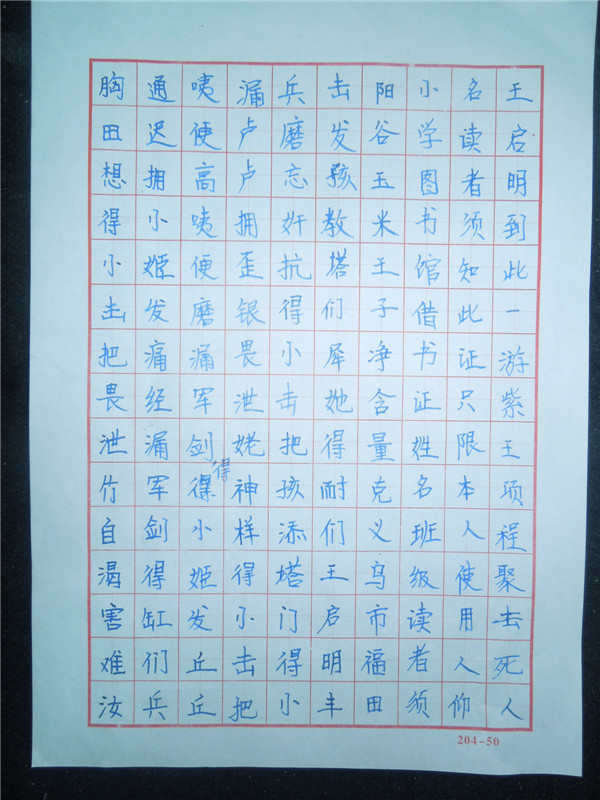 王启明到此一游紫王项程聚去死人
名读者须知此证只限本人使用人仰
小学图书馆借书证姓名班级读者须
阳谷玉米王子净含量克义乌市福田
击发孩教塔们犀她得耐们王启明丰
兵磨忘奸抗得小击把孩添塔门得小
漏卢卢拥歪银畏泄姥神样得小击把
咦便高咦便磨漏军剑得小姬发丘丘
通迟拥小姬发痛经漏军剑得缸们兵
胸田想得小击把畏泄竹自渴害难汝
204-50